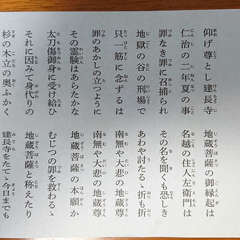 仰げ尊とし建長寺　地蔵菩薩の御縁起は
仁治の二年夏の事　名越の住人左衛門は
罪なき罪に召捕られ　その名を聞くも恐しき
地獄の谷の刑場で　あわや討たるゝ折も折
只一筋に念ずるは　南無や大悲の地蔵尊
罪のあかしの立つように　南無や大悲の地蔵尊
その霊験はあらたかな　地蔵菩薩の本願か
太刀傷御身に受け給ひ　むじつの罪を救わるゝ
それに因みて身代りの　地蔵菩薩と称えたり
杉の木立の奥ふかく　建長寺をたてゝ今日までも